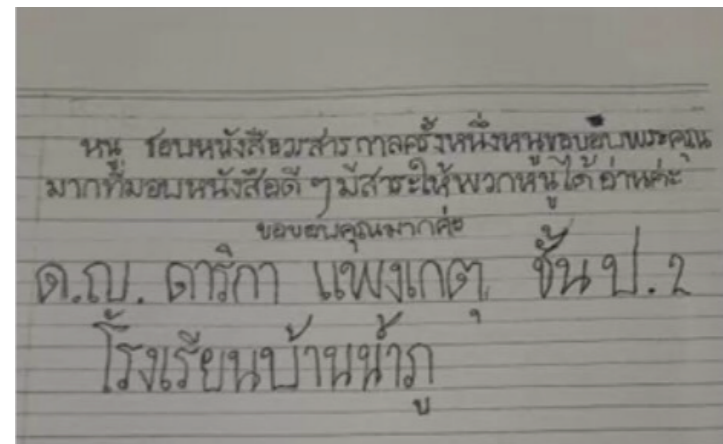 หนู ชอบหนังสือวรสารกาลครั้งหนึ่งหนูขอบอบพระคุณ
มากที่มอบหนังสือดี ๆ มีสาระให้พวกหนูได้อ่านค่ะ
ขอบอบคุณมากค่ะ
ด.ญ. ดาริกา แพงเกตุ ชั้น ป. 2
โรงเรียนบ้านน้ำภู